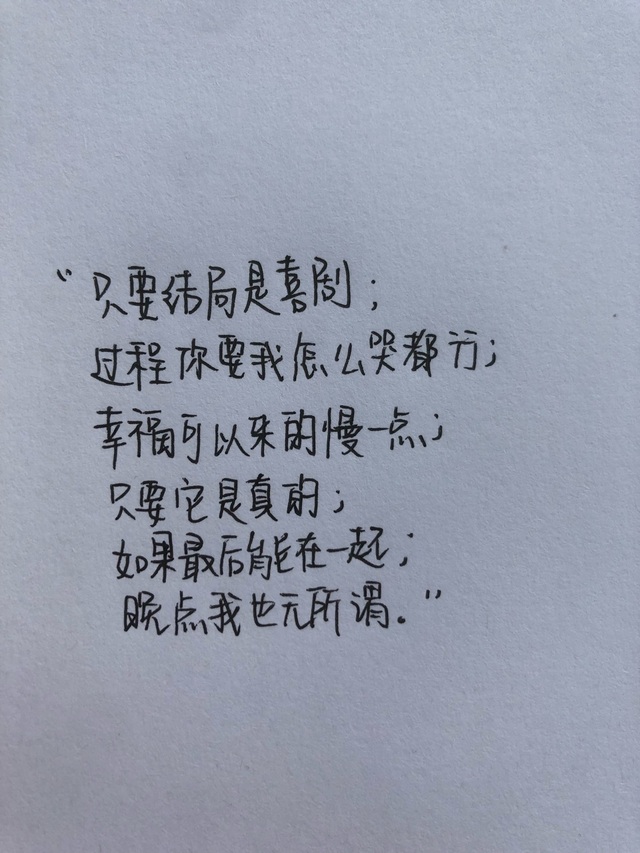 “只要结局是喜剧；
过程你要我怎么哭都行；
幸福可以来的慢一点；
只要它是真的；
如果最后能在一起；
晚点我也无所谓.”